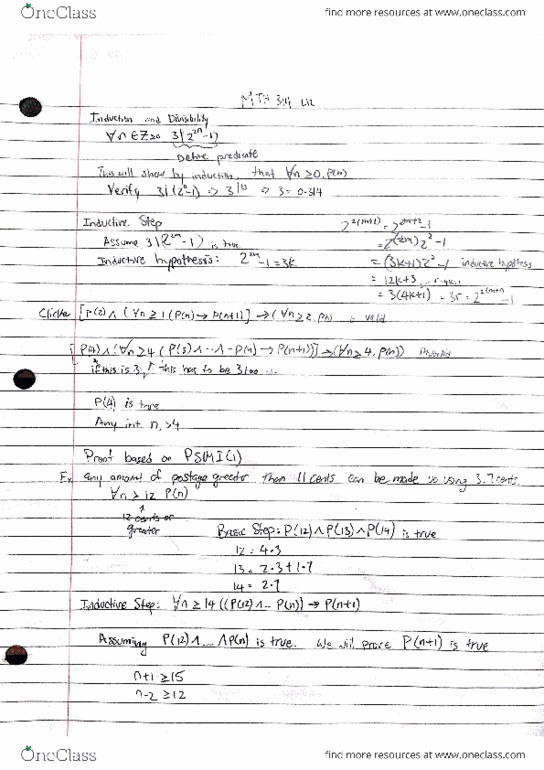 OneClass
find more resources at www.oneclass.com
MTH 314 L12
Induction and Divisibility
∀n ∈ Z≥0 3|(2²ⁿ-1)
Define predicate
This will show by induction, that ∀n ≥ 0, P(n)
Verify 3|(2⁰-1) ⇒ 3|0 ⇒
Inductive Step
Assume 3|(2²ᵐ-1) is true
Inductive hypothesis: 2²ᵐ-1=3k
2²⁽ᵐ⁺¹⁾ = 2²ᵐ⁺²-1
= 2⁽²ᵐ⁾2²-1
= (3k+1)2²-1 inductive hypothesis
= 12k+3
= 3(4k+1) = 3r = 2²⁽ᵐ⁺¹⁾-1
Clicker [P(2) ∧ (∀n ≥ 1 (P(n) → P(n+1)] → (∀n ≥ 2, P(n) is valid
[P(4) ∧ (∀n ≥ 4 (P(3) ∧ ... ∧ P(n) → P(n+1))] → (∀n ≥ 4, P(n)) Invalid
if this is 3, this has to be 3
P(4) is true
Any int. n, >4
Proof based on PSMI(1)
Ex any amount of postage greater than 11 cents can be made using 3, 7 cents.
∀n ≥ 12 P(n)
12 cents or
greater
Basic Step: P(12) ∧ P(13) ∧ P(14) is true
12 = 4·3
13 = 2·3+1·7
14 = 2·7
Inductive Step: ∀n ≥ 14 ((P(12) ∧ ... P(n)) → P(n+1)
Assuming P(12) ∧ ... ∧ P(n) is true. We will prove P(n+1) is true
n+1 ≥ 15
n-2 ≥ 12
OneClass
find more resources at www.oneclass.com